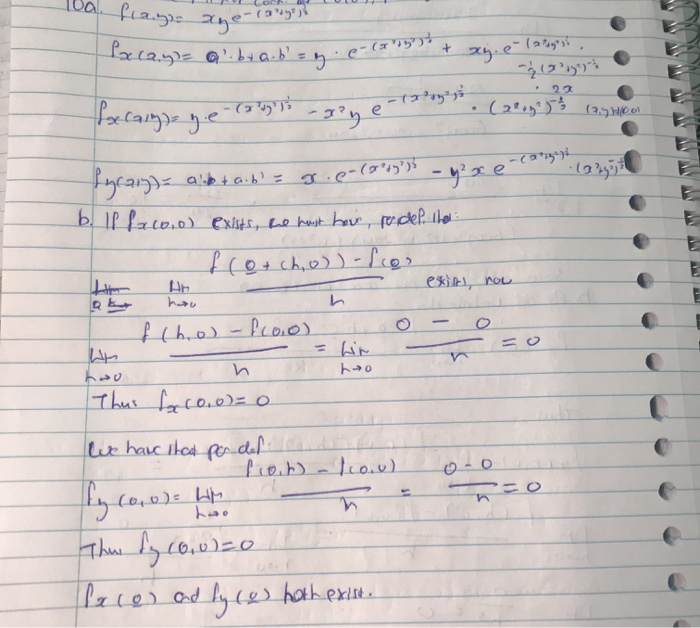 10a. f(x,y) = xye^-(x²+y²)^½
fx(x,y) = a'·b+a·b' = y · e^-(x²+y²)^½ + xy·e^-(x²+y²)^½ ·
-½(x²+y²)^-½
· 2x
fx(x,y) = y·e^-(x²+y²)^½ - x²y e^-(x²+y²)^½ · (x²+y²)^-½ (x,y)≠(0,0)
fy(x,y) = a'·b+a·b' = x·e^-(x²+y²)^½ - y²x e^-(x²+y²)^½ ·(x²+y²)^-½
b. If fx(0,0) exists, we must have, per def. that:
lim h→0 (f(0+(h,0)) - f(0))/h exists, now
lim h→0 (f(h,0) - f(0,0))/h = lim h→0 (0 - 0)/h = 0
Thus fx(0,0) = 0
We have that per def:
fy(0,0) = lim h→0 (f(0,h) - f(0,0))/h = (0-0)/h = 0
Thus fy(0,0) = 0
fx(0) and fy(0) both exist.